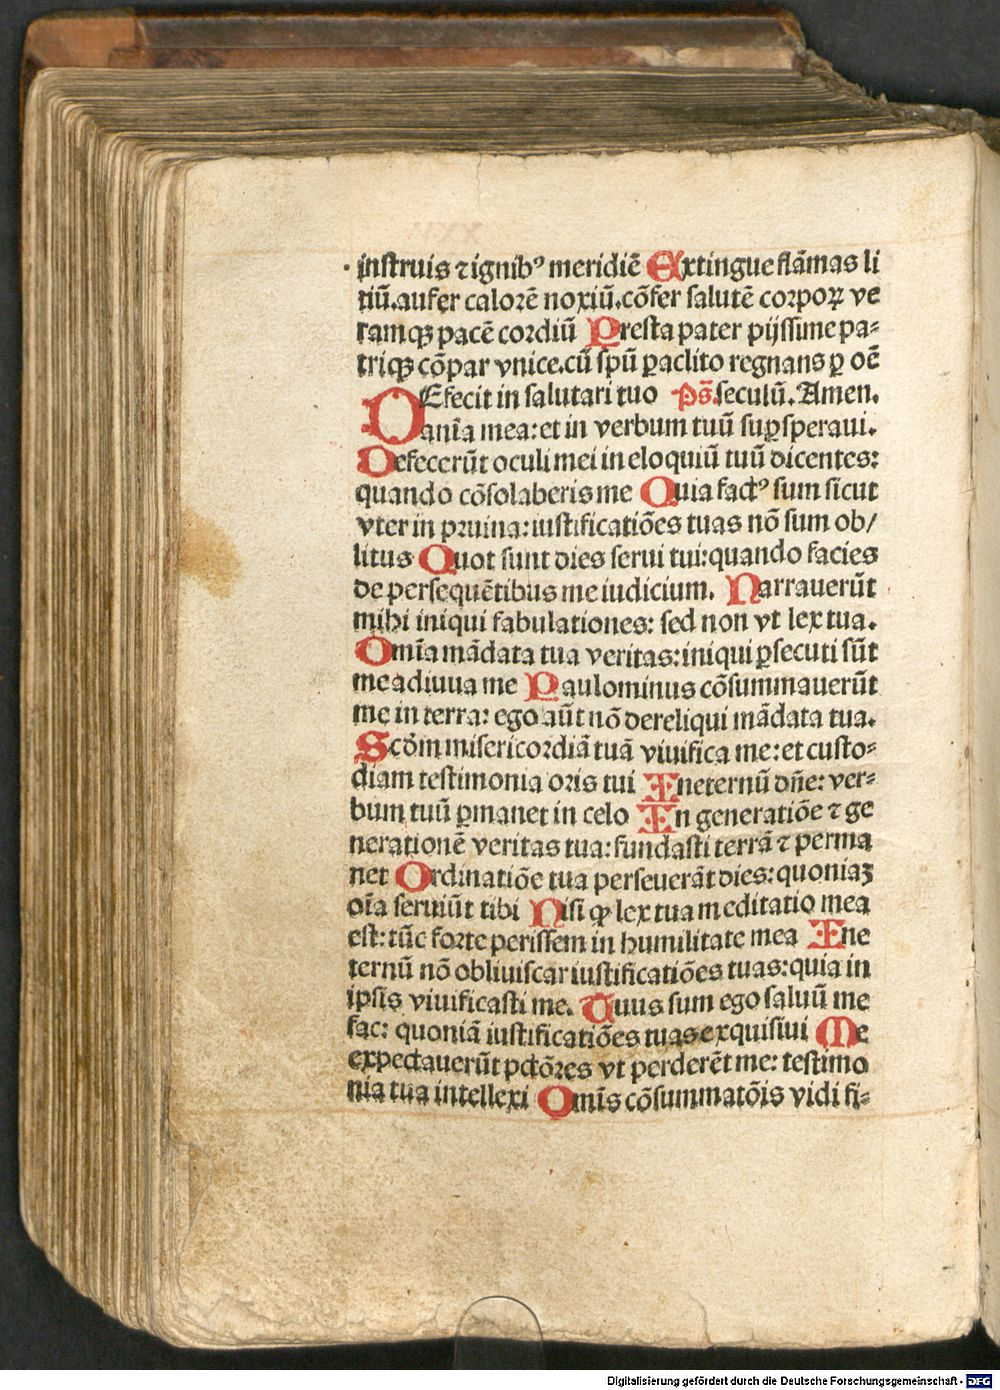 instruis ⁊ ignibꝰ meridiē Extingue flāmas li
tiū.aufer calorē noxiū.cōfer salutē corpoꝝ ve
ramqꝫ pacē cordiū Presta pater pijssime pa⸗
triqꝫ cōpar vnice.cū spū ꝑaclito regnans ꝑ oē
DEfecit in salutari tuo Ps̄. seculū. Amen.
aniā mea: et in verbum tuū suꝑsperaui.
Defecerūt oculi mei in eloquiū tuū dicentes:
quando cōsolaberis me Quia factꝰ sum sicut
vter in pruina: iustificatiōes tuas nō sum ob/
litus Quot sunt dies serui tui: quando facies
de persequētibus me iudicium. Narrauerūt
mihi iniqui fabulationes: sed non vt lex tua.
Omīa mādata tua veritas: iniqui ꝑsecuti sūt
me adiuua me Paulominus cōsummauerūt
me in terra: ego aūt nō dereliqui mādata tua.
Scdm̄ misericordiā tuā viuifica me: et custo⸗
diam testimonia oris tui Ineternū dn̄e: ver⸗
bum tuū ꝑmanet in celo In generatiōe ⁊ ge
nerationē veritas tua: fundasti terrā ⁊ perma
net Ordinatiōe tua perseuerāt dies: quoniaꝫ
oīa seruiūt tibi Nisi ꝙ lex tua meditatio mea
est: tūc forte perissem in humilitate mea Ine
ternū nō obliuiscar iustificatiōes tuas: quia in
ipsis viuificasti me. Tuus sum ego saluū me
fac: quoniā iustificatiōes tuas exquisiui Me
expectauerūt pctōres vt perderēt me: testimo
nia tua intellexi Omīs cōsummatōis vidi fi⸗
Digitalisierung gefördert durch die Deutsche Forschungsgemeinschaft - DFG